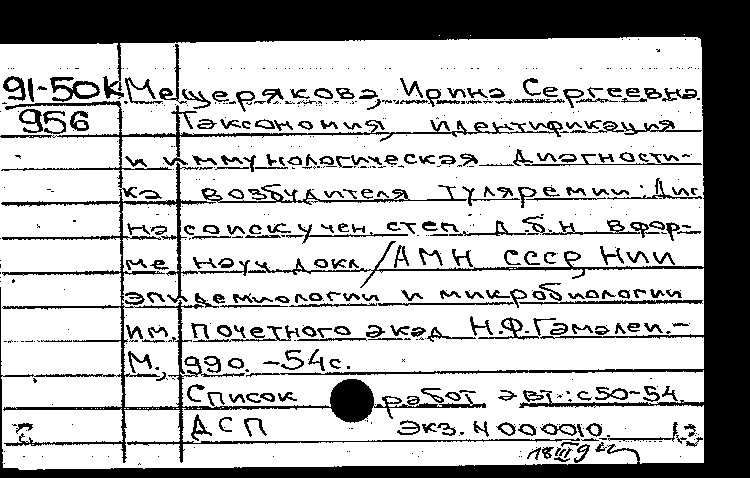 91-50к Мещерякова, Ирина Сергеевна
956 Таксономия, идентификация
и иммунологическая диагности-
ка возбудителя туляремии: Дис.
на соиск. учен. степ. д.б.н. в фор-
ме науч. докл. / АМН СССР, НИИ
эпидемиологии и микробиологии
им. почетного акад. Н.Ф.Гамалеи. -
М., 1990. - 54 с.
Список работ авт.: с 50-54.
ДСП Экз. N 000010.